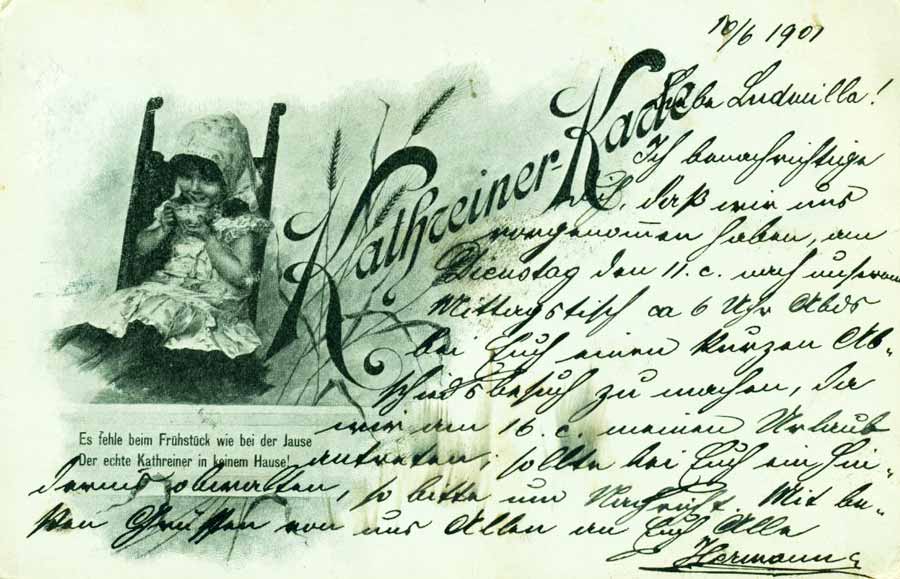 10/6 1901
Liebe Ludmilla!
Ich benachrichtige
Dich, daß wir uns
vorgenommen haben, am
Dienstag den 11. c. nach unserem
Mittagstisch ca 6 Uhr Abds
bei Euch einen kurzen Ab-
schiedsbesuch zu machen, da
wir am 16. c. meinen Urlaub
antreten; sollte bei Euch ein Hin-
dernis obwalten, so bitte um Nachricht. Mit be-
sten Grüssen von uns Allen an Euch Alle
Hermann
Kathreiner-Kaffe
Es fehle beim Frühstück wie bei der Jause
Der echte Kathreiner in keinem Hause!